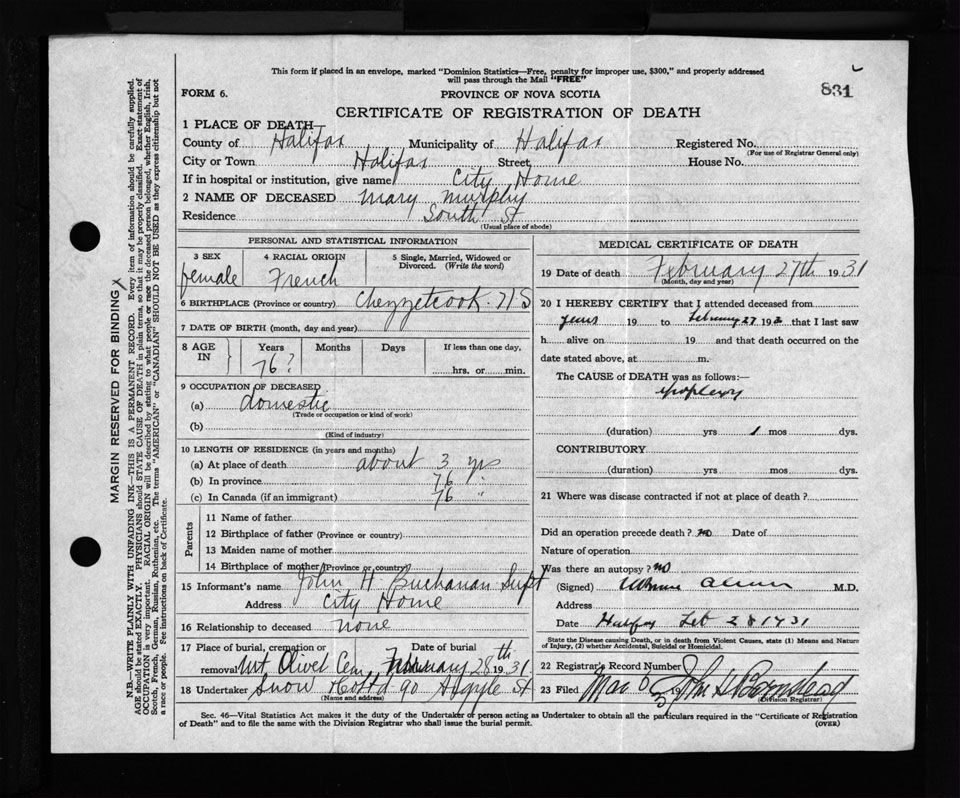 This form if placed in an envelope, marked "Dominion Statistics—Free, penalty for improper use, $300," and properly addressed
will pass through the Mail "FREE"
831
FORM 6.
PROVINCE OF NOVA SCOTIA
CERTIFICATE OF REGISTRATION OF DEATH
1 PLACE OF DEATH—
County of Halifax Municipality of Halifax Registered No.
(For use of Registrar General only)
City or Town Halifax Street House No.
If in hospital or institution, give name City Home
2 NAME OF DECEASED Mary Murphy
Residence South St
(Usual place of abode)
PERSONAL AND STATISTICAL INFORMATION
3 SEX 4 RACIAL ORIGIN 5 Single, Married, Widowed or
Divorced. (Write the word)
female French
6 BIRTHPLACE (Province or country) Chezzetcook NS
7 DATE OF BIRTH (month, day and year)
8 AGE IN Years Months Days If less than one day,
76? hrs. or min.
9 OCCUPATION OF DECEASED
(a) domestic
(Trade or occupation or kind of work)
(b)
(Kind of industry)
10 LENGTH OF RESIDENCE (in years and months)
(a) At place of death about 3 yrs
(b) In province 76 "
(c) In Canada (if an immigrant) 76 "
Parents
11 Name of father
12 Birthplace of father (Province or country)
13 Maiden name of mother
14 Birthplace of mother (Province or country)
15 Informant's name John H Buchanan Supt
Address City Home
16 Relationship to deceased none
17 Place of burial, cremation or Date of burial
removal Mt Olivet Cem February 28th 1931
18 Undertaker Snow & Co Ltd 90 Argyle St
(Name and address)
MEDICAL CERTIFICATE OF DEATH
19 Date of death February 27th 1931
(Month, day and year)
20 I HEREBY CERTIFY that I attended deceased from
years 19 to February 27 193 that I last saw
h alive on 19 and that death occurred on the
date stated above, at m.
The CAUSE of DEATH was as follows:—
apoplexy
(duration) yrs 1 mos dys.
CONTRIBUTORY
(duration) yrs mos dys.
21 Where was disease contracted if not at place of death?
Did an operation precede death? no Date of
Nature of operation
Was there an autopsy? no
(Signed) M.D.
Address
Date Halifax Feb 28 1931
State the Disease causing Death, or in death from Violent Causes, state (1) Means and Nature
of Injury, (2) whether Accidental, Suicidal or Homicidal.
22 Registrar's Record Number
23 Filed Mar 6 John
(Division Registrar)
Sec. 46—Vital Statistics Act makes it the duty of the Undertaker or person acting as Undertaker to obtain all the particulars required in the "Certificate of Registration
of Death" and to file the same with the Division Registrar who shall issue the burial permit.
(OVER)
MARGIN RESERVED FOR BINDING
N.B.—WRITE PLAINLY WITH UNFADING INK—THIS IS A PERMANENT RECORD. Every item of information should be carefully supplied.
AGE should be stated EXACTLY. PHYSICIANS should STATE CAUSE OF DEATH in plain terms, so that it may be properly classified. Exact statement of
OCCUPATION is very important. RACIAL ORIGIN will be described by stating to what people or race the deceased person belonged, whether English, Irish,
Scotch, French, German, Russian, Ruthenian, etc. The terms "AMERICAN" or "CANADIAN" SHOULD NOT BE USED as they express citizenship but not
a race or people. See instructions on back of Certificate.